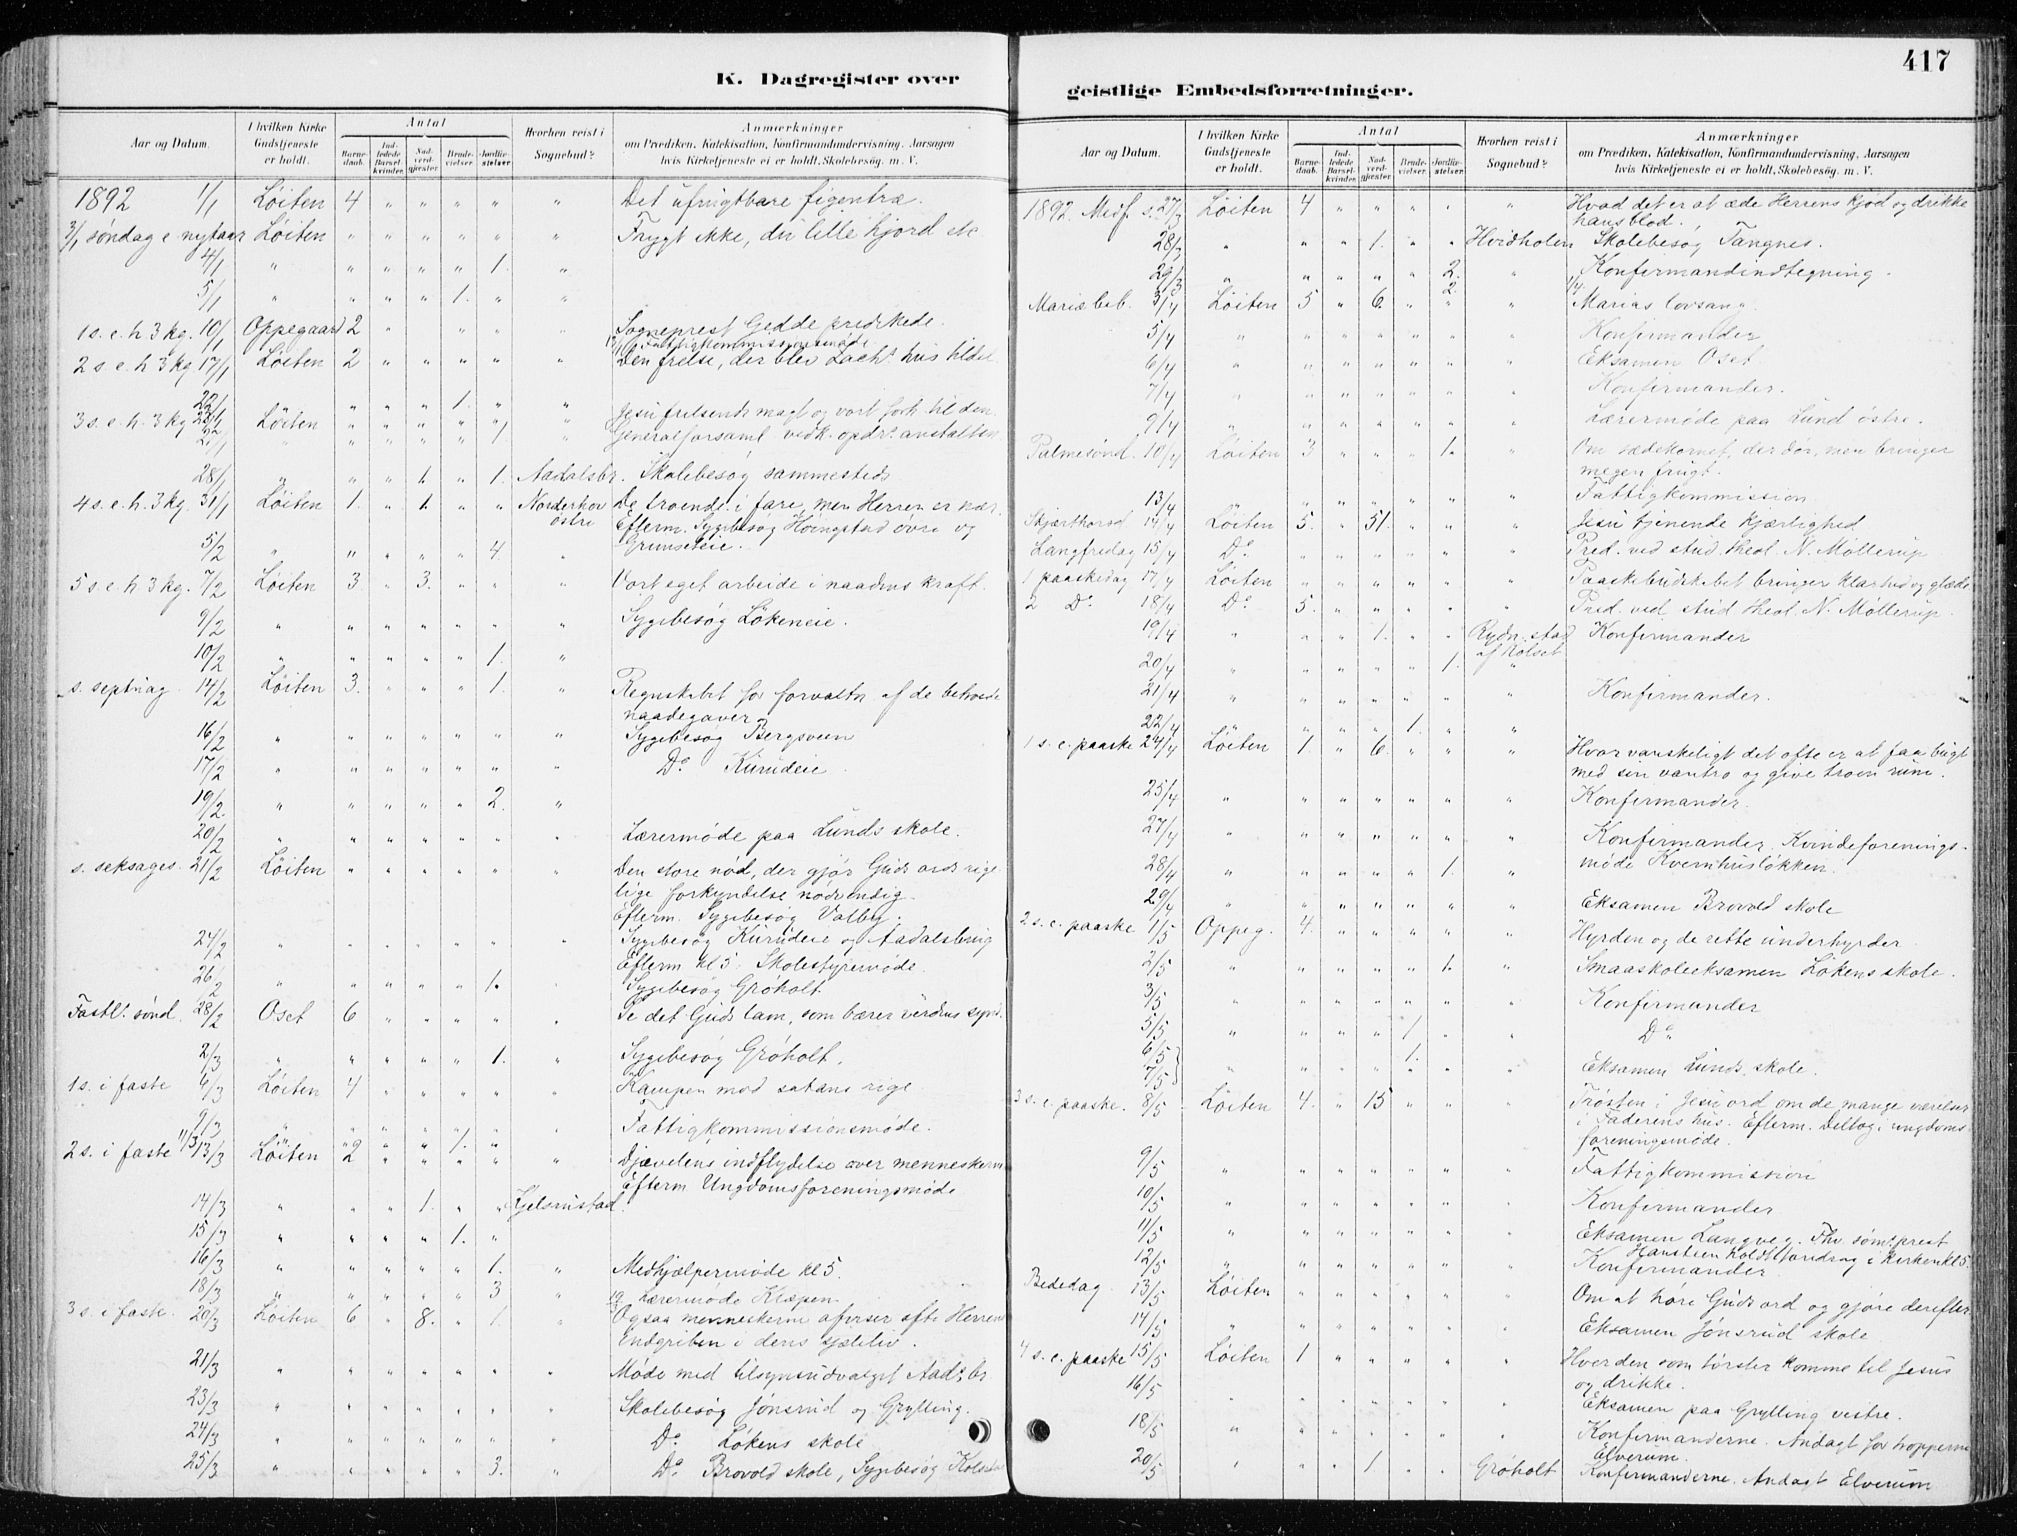 417
K. Dagregister over
geistlige Embedsforretninger.
Aar og Datum. I hvilken Kirke Gudstjeneste er holdt. Antal Barnedaab. Indledede Barselkvinder. Nadverdgjester. Brudevielser. Jordfæstelser. Hvorhen reist i Sognebud? Anmærkninger om Prædiken, Katekisation, Konfirmandundervisning, Aarsagen hvis Kirketjeneste ei er holdt, Skolebesøg, m. V.
1892 1/1 Löiten 4 " " " " " Det ufrugtbare figentræ.
3/1 søndag e. nytaar Löiten " " " " " " Frygt ikke, du lille hjord etc
4/1 " " " " " 1. "
5/1 " " " " 1. " "
1 s. e. h. 3 kg. 10/1 Oppegaard 2 " " " " " Sogneprest Gedde predikede.
Fattigkommissionsmøde.
2 s. e. h. 3 kg 17/1 Löiten 2 " " " " " Den frelse, der blev Zachæ hus tildel
22/1 " " " 1. " "
3 s. e. h. 3 kg Löiten " " " " " " Jesu frelsende magt og vort forh. til den.
" " " " " 1 " Generalforsaml. vedk. opdr. anstalten
28/1 " " " 1. " 1. Aadalsbr. Skolebesøg sammesteds
4 s. e. h. 3 kg. 31/1 Löiten 1. " 1. " " Norderhov østre De troende i fare, men Herren er nær.
Efterm. Sygebesøg Høingstad øvre og
Grunseteie.
5/2 " " " " " 4. "
5 s. e. h. 3 kg. 7/2 Löiten 3 " 3. " " " Vort eget arbeide i naadens kraft.
9/2 " " " " " " " Sygebesøg Løkeneie.
10/2 " " " " " 1. "
s. septuag. 14/2 Löiten 3. " " " 1. " Regnskabet for forvaltn. af de betroede
naadegaver
16/2 " " " " " " " Sygebesøg Bergsveen
17/2 " " " " " " " Do Kurudeie.
19/2. " " " " " 2. "
20/2 " " " " " " " Lærermøde paa Lunds skole.
s. seksages. 21/2 Löiten " " " " " " Den store nød, der gjør Guds ords rige
lige forkyndelse nødvendig.
Efterm. Sygebesøg Valbg.
24/2 " " " " " " " Sygebesøg Kurudeie og Aadalsbrug
Efterm kl 5. Skolestyremøde.
26/2 " " " " " 1. " Sygebesøg Grøholt
Fastl. sønd. 28/2 Oset 6 " " " " " Se det Guds lam, som bærer verdens synd.
2/3 " " " " " 1. " Sygebesøg Grøholt.
1 s. i faste 6/3 Löiten 4 " " " " " Kampen mod satans rige.
9/3 " " " " " " " Fattigkommissionsmøde.
11/3 " " " " 1. "
2 s. i faste 13/3 Löiten 2 " " " " " Djævelens indflydelse over menneskern
Efterm Ungdomsforeningsmøde
14/3 " " " 1. " " Kjelsrustad.
15/3 " " " " 1. "
16/3 " " " " " 1. " Medhjælpermøde kl 5.
18/3 " " " " " 3 " Lærermøde Klæpen
3 s. i faste. 20/3 Löiten 6 " 8. " 1. " Ogsaa menneskerne afviser ofte Herrens
Indgriben i deres sjæleliv.
21/3 " " " " " " " Møde med tilsynsudvalget Aads. br
23/3 " " " " " " " Skolebesøg Jønsrud og Grylling.
24/3 " " " " " " " Do Løkens skole
25/3 " " " " " 3. " Do Brovold skole, Sygebesøg
Aar og Datum. I hvilken Kirke Gudstjeneste er holdt. Antal Barnedaab. Indledede Barselkvinder. Nadverdgjester. Brudevielser. Jordfæstelser. Hvorhen reist i Sognebud? Anmærkninger om Prædiken, Katekisation, Konfirmandundervisning, Aarsagen hvis Kirketjeneste ei er holdt, Skolebesøg, m. V.
1892. Midf. s. 27/3 Löiten 4 " " " " " Hvad det er at æde Herrens kjød og drikke
hans blod.
28/3 " " " 1. " " Hvidholen Skolebesøg Tangnes.
29/3 " " " " " 2. " Konfirmandindtegning.
Mariæ beb. 3/4 Löiten 5 " 6. " 2. " Marias lovsang
5/4 " " " " " " " Konfirmander
6/4 " " " " " " " Eksamen Oset
7/4 " " " " " " " Konfirmander.
9/4 " " " " " " " Lærermøde paa Lund østre.
Palmesønd. 10/4 Löiten 3 " " " 1. " Om sædekornet, der dør, men bringer
megen frugt.
13/4 " " " " " " " Fattigkommission
Skjærthorsd 14/4 Löiten 5. " 51. " " " Jesu tjenende kjærlighed
Langfredag 15/4 Do " " " " " " Pred. ved stud. theol. N. Møllerup
1 paaskedag 17/4 Löiten " " " " " " Paaskebudskabet bringer klarhed og glæde
2 Do 18/4 Do 5. " " " " " Pred. ved stud theol. N. Møllerup.
19/4 " " " 1. " " Rydn. stad af Kolset Konfirmander
20/4 " " " " " 1. "
21/4 " " " " " " " Konfirmander.
22/4 " " " " 1. " "
1 s. e. paaske 24/4 Löiten 1 " 6. " " " Hvor vanskeligt det ofte er at faa bugt
med sin vantro og give troen rum.
25/4 " " " " " " " Konfirmander.
27/4 " " " " " " " Konfirmander. Kvindeforenings-
møde Kvernhusløkken.
28/4 " " " " " 1. "
29/4 " " " " " " " Eksamen Brovold skole
2 s. e. paaske 1/5 Oppeg. 4. " " " " " Hyrden og de rette underhyrder.
2/5 " " " " " 1. " Smaaskoleeksamen Løkens skole.
3/5 " " " " " " " Konfirmander
5/5 " " " " 1 " " Do
6/5 7/5 " " " " 1. " " Eksamen Lunds skole.
3 s. e. paaske. 8/5 Löiten 4. " 15 " " " Trøsten i Jesu ord om de mange værelser
i Faderens hus. Efterm. Deltog i ungdoms
foreningsmøde.
9/5 " " " " " " " Fattigkommission
10/5 " " " " " " " Konfirmander
11/5 " " " " " " " Eksamen Langveg. Fhv. sømprest
Hansteen holdt foredrag i kirken kl 5.
12/5 " " " " " " " Konfirmander
Bededag. 13/5 Löiten " " " " " " Om at høre Guds ord og gjøre derefter
14/5 " " " " " " " Eksamen Jønsrud skole
4 s. e. paaske 15/5 Löiten 1 " " " " " Hver den som tørster komme til Jesus
og drikke.
16/5 " " " " " " " Eksamen paa Grylling vestre.
18/5 " " " " " " " Konfirmanderne. Andagt for tropperne
Elverum.
20/5 " " " 1. " " Grøholt Konfirmanderne. Andagt Elverum